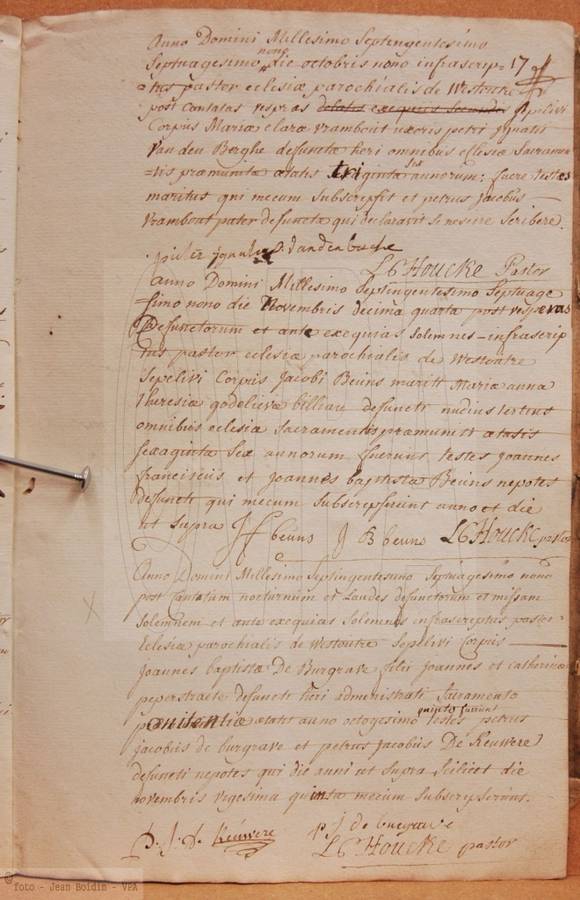 Anno Domini Millesimo Septingentesimo
nono
Septuagesimo die octobris nono infrascrip= 17
=tus pastor eclesiæ parochialis de Westoutre
post Cantatas vespras Sepelivi
Corpus Mariæ claræ vrambout uxoris petri ignatii
van den Berghe defunctæ heri omnibus eclesiæ Sacramen
=tis præmunitæ ætatis triginta annorum: fuere testes
maritus qui mecum Subscripsit et petrus Jacobus
vrambout pater defunctæ qui declaravit se nescire scribere.
L C Houcke Pastor
Anno Domini Millesimo Septingentesimo Septuage
=simo nono die Novembris decima quarta post vesperas
Defunctorum et ante exequias Solemnes infrascrip
tus pastor eclesiæ parochialis de Westoutre
Sepelivi Corpus Jacobi Beuns mariti Mariæ anna
Theresiæ godelieva billiau defuncti nudius tertius
omnibus eclesiæ Sacramentis præmuniti ætatis
sexaginta Sex annorum fuerunt testes Joannes
franciscus et Joannes baptista Beuns nepotes
defuncti qui mecum Subscripserunt anno et die
ut supra J f beuns J B beuns L C Houcke pastor
Anno Domini Millesimo Septingentesimo Septuagesimo nono
post Cantatum nocturnum et Laudes defunctorum et missam
Solemnem et ante exequias Solemnes infrascriptus pastor
Eclesiæ parochialis de Westoutre Sepelivi Corpus
Joannes baptista De Burgrave filii Joannes et catharina
peperstraete defuncti heri administrati Sacramento
pænitentiæ ætatis anno octogesimo quinto fuerunt testes petrus
jacobus de burgrave et petrus Jacobus De Keuwere
defuncti nepotes qui die anni ut supra Scilicet die
novembris vigesima quinta mecum Subscripserunt.
p. j. d. Keuwere p j de burgrave
L C Houcke pastor
© foto - Jean Boidin - VPA